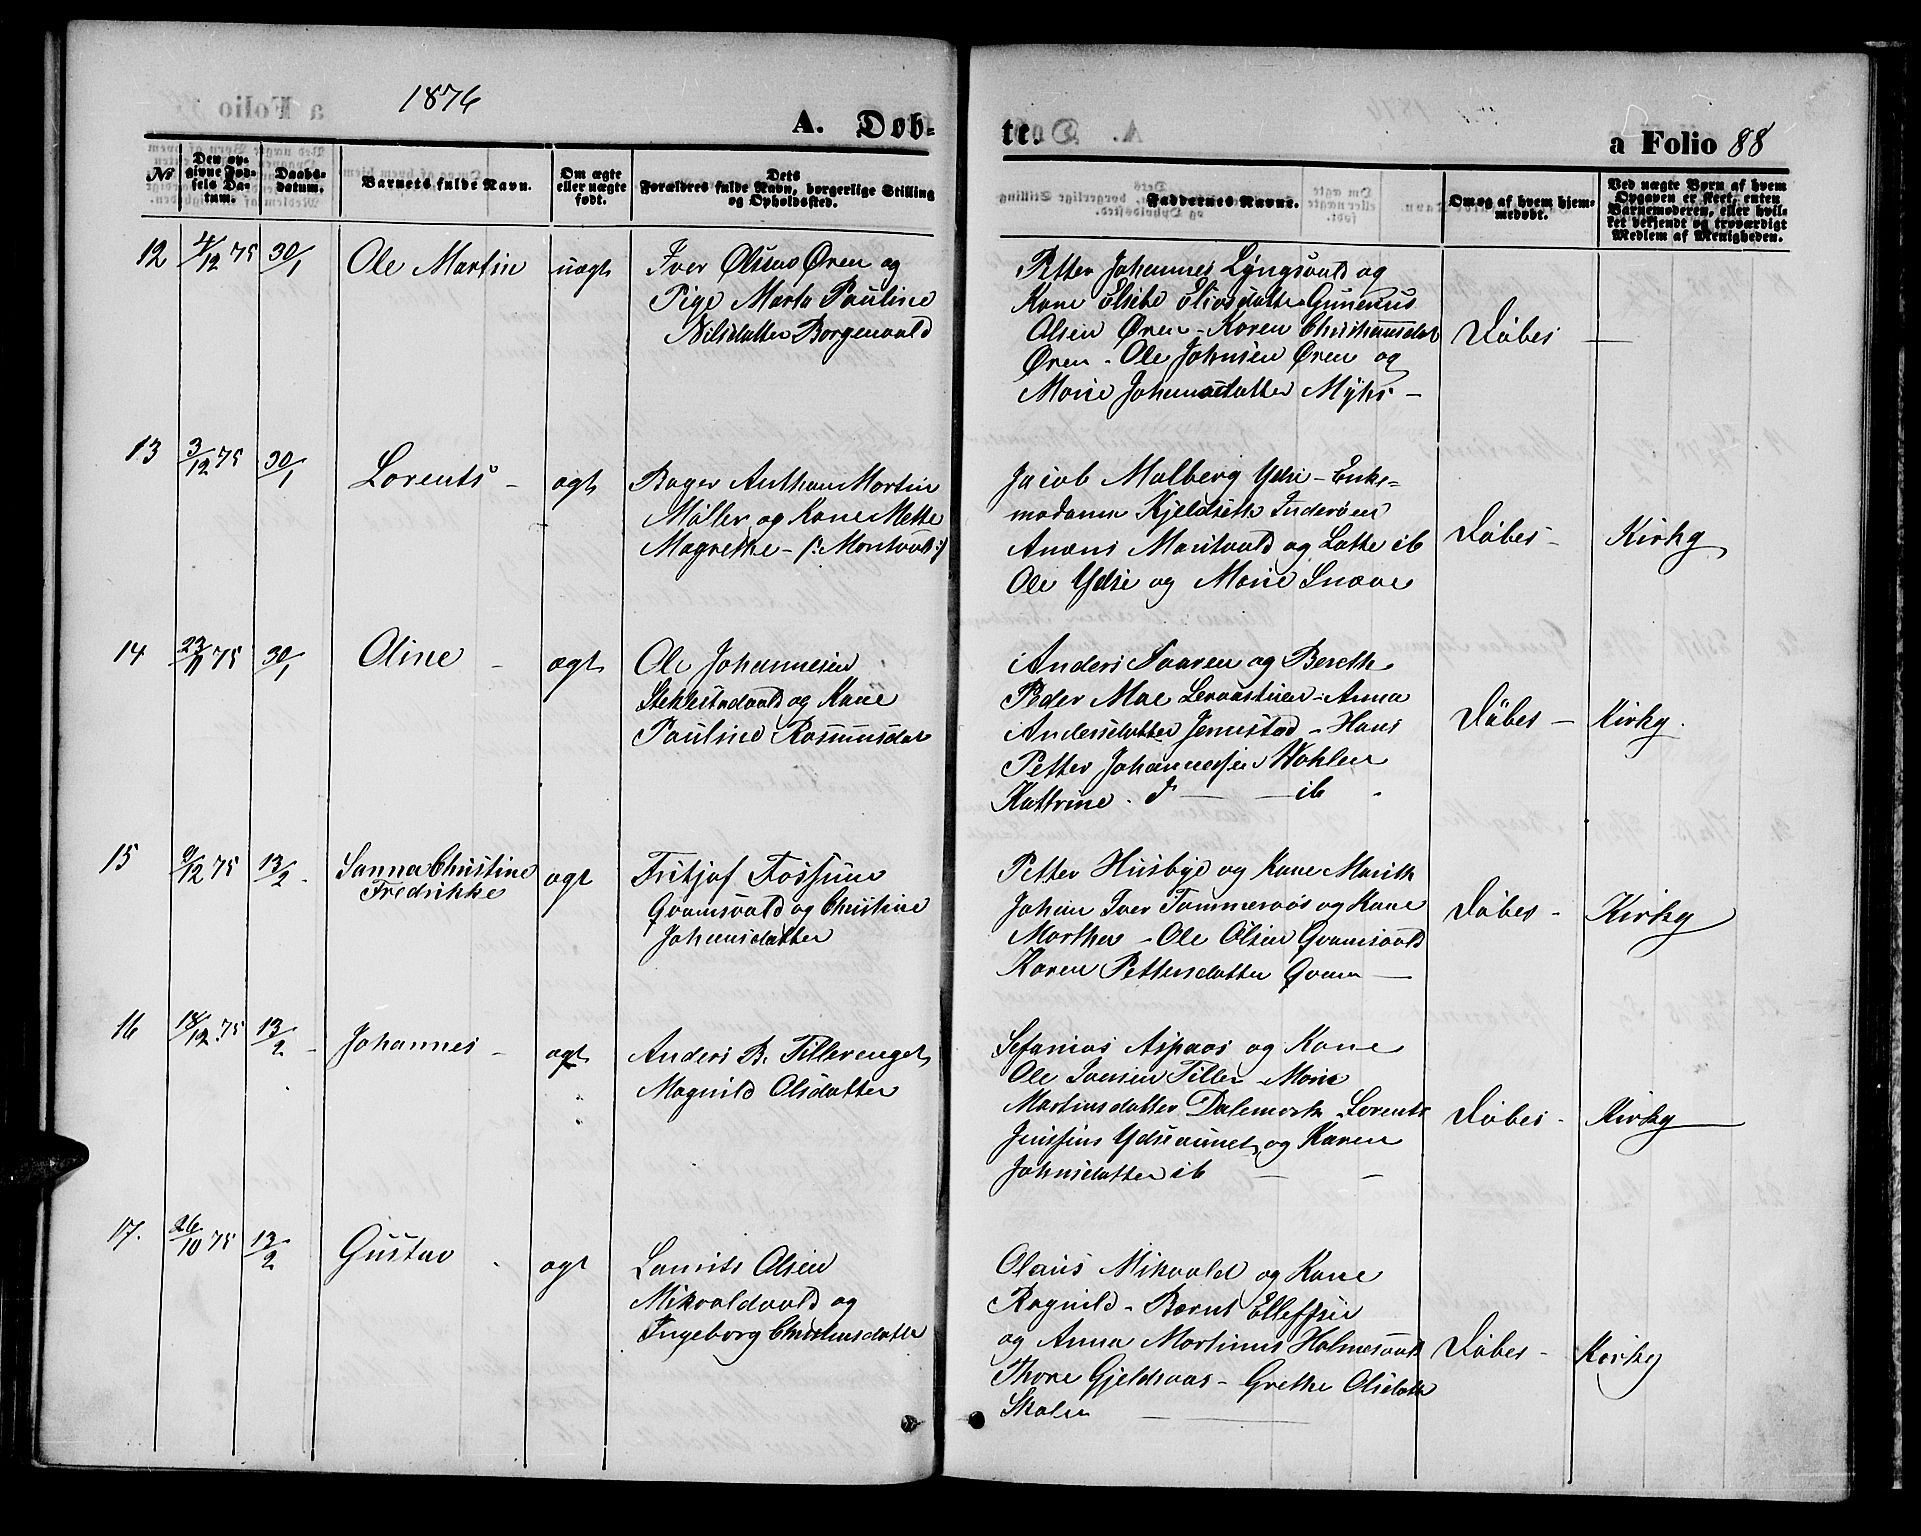 1876
A. Døb-
te.
a Folio 88
No
Den op-
givne Fød-
sels Da-
tum.
Daabs-
datum.
Barnets fulde Navn.
Om ægte
eller uægte
født.
Dets
Forældres fulde Navn, borgerlige Stilling
og Opholdssted.
Faddernes Navne.
Om og af hvem hjem-
medøbt.
Ved uægte Børn af hvem
Opgaven er skeet, enten
Barnemoderen, eller hvil-
ket bekjendt og troværdigt
Medlem af Menigheden.
12 4/12 75 30/1 Ole Martin uægt Iver Olsen Ören og
Pige Marta Pauline
Nilsdatter Borgenvald
Petter Johannes Lyngsvald og
Kone Elsebe Gunerius
Olsen Ören - Karen Christiansdat
Ören - Ole Johnsen Ören og
Marie Johansdatter Myhr -
Døbes —
13 3/12 75 30/1 Lorents - ægt Bager Anthon Martin
Møller og Kone Mette
Magrethe -
Jacob Malberg Ydse - Enke-
madame Kjeldseth Inderøen
Maritvald og Lotte ib
Ole Ydse og Marie Snave
Døbes - Kirkg
14 23/11 75 30/1 Oline - ægt Ole Johannesen
Stiklestadvald og Kone
Pauline Rasmusdat
Anders Saaren og Bereth
Peder Moe - Anna
Andersdatter Jermstad - Hans
Petter Johannesen Wohlen
Kattrine. d — ib
Døbes - Kirkg.
15 9/12 75 13/2 - Sanna Christine
Fredrikke
ægt Fritjof Fossum
Qvamsvald og Christine
Johansdatter
Petter Husbye og Kone Marith
Johan Iver Tømmeraas og Kone
Marthe - Ole Olsen Qvamsvald
Karen Pettersdatter Qvam —
Døbes - Kirkg
16 18/12 75 13/2 - Johannes - ægt Anders B. Tillerenget
Magnild Olsdatter
Sefanias Aspaas og Kone
Ole Iversen Tiller - Marie
Martinsdatter Dalemark - Lorents
Jenssen Ydseaunet og Karen
Johnsdatter ib — -
Døbes - Kirkg
17. 26/10 75 13/2 Gustav . ægt Laurits Olsen
Mikvoldvald og
Ingeborg Christensdatter
Olaus Mikvold og Kone
Ragnild - Bernt Elleffsen
og Anna Martinus Holmesvald
Thore Gjeldraas - Grethe Olsdatter
Skalen —
Døbes - Kirkg